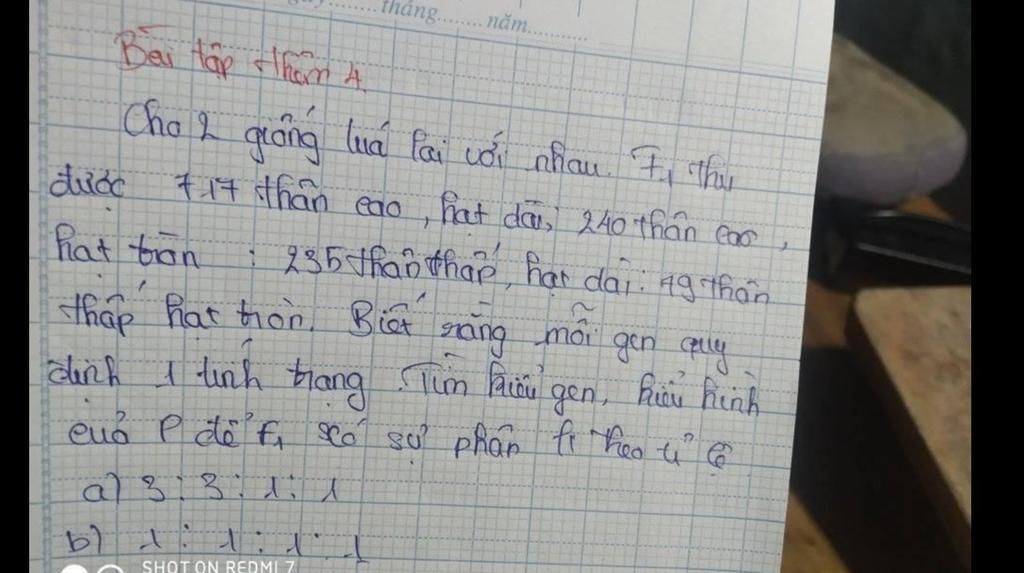 tháng........năm............
Bài tập thân 4
Cho 2 giống luá lai với nhau. F1 thu
được 717 thân cao, hạt dài; 240 thân cao,
hạt tròn : 235 thân thấp, hạt dài: 79 thân
thấp hạt tròn. Biết rằng mỗi gen quy
định 1 tính trạng. Tìm kiểu gen, kiểu hình
của P để F1 có sự phân li theo tỉ lệ
a) 3 : 3 : 1 : 1
b) 1 : 1 : 1 : 1
SHOT ON REDMI 7